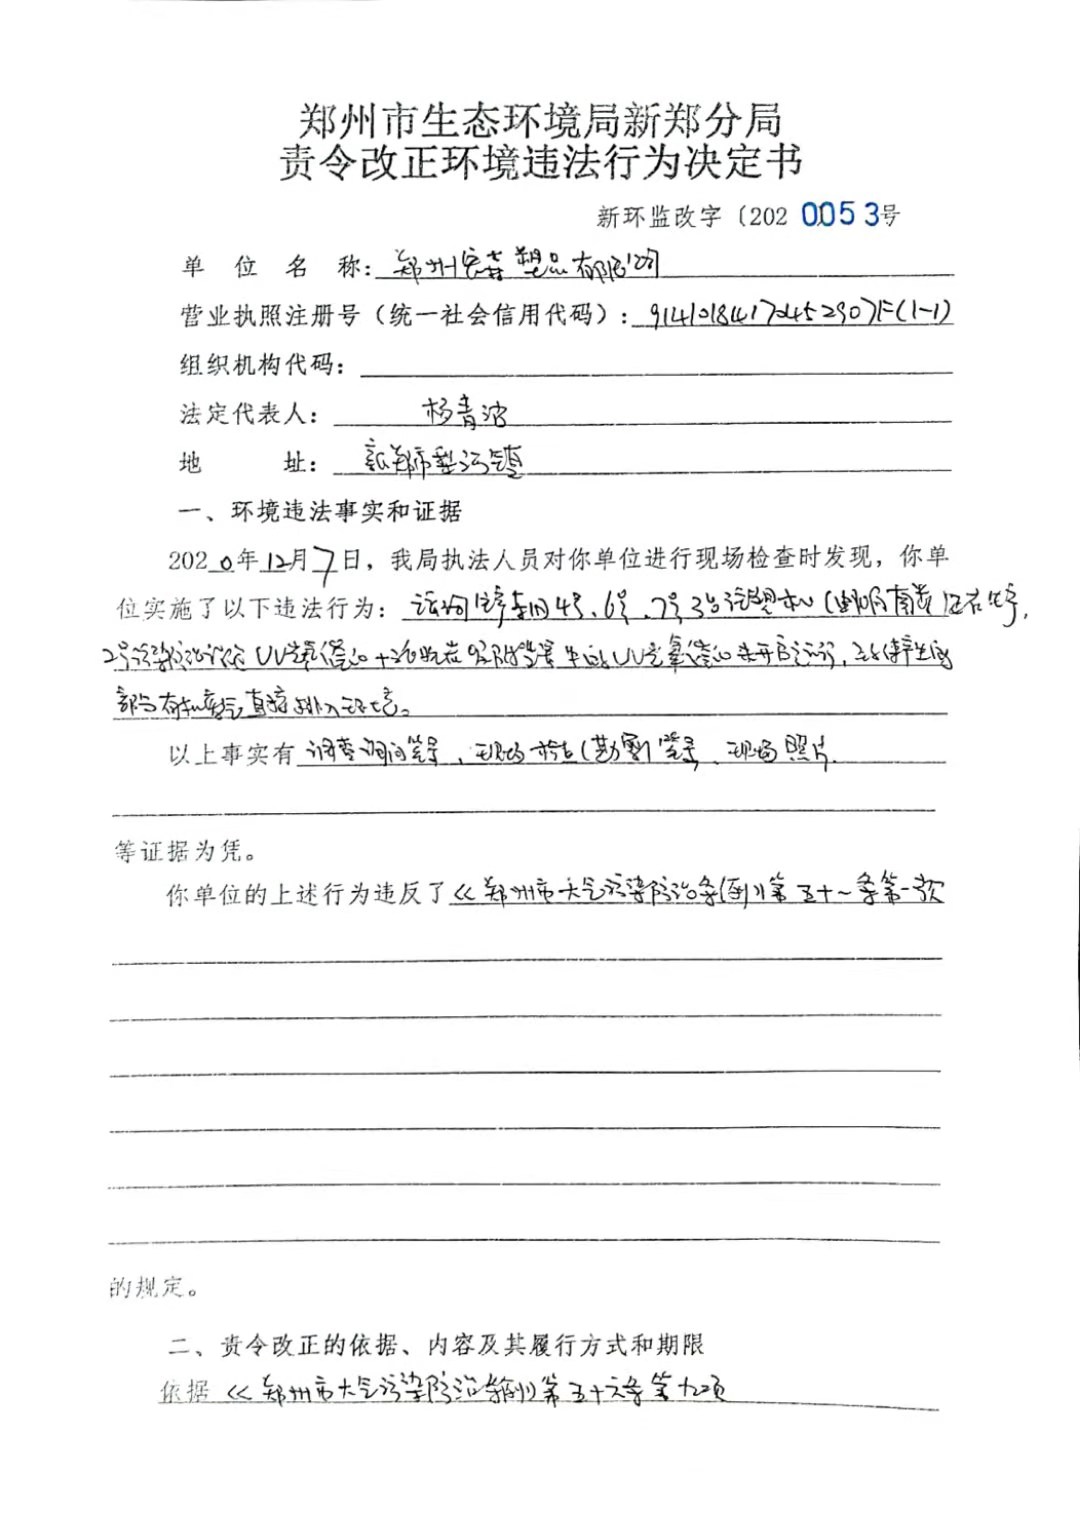 郑州市生态环境局新郑分局
责令改正环境违法行为决定书
新环监改字〔202 0053号
单 位 名 称:郑州宏 塑品有限公司
营业执照注册号(统一社会信用代码):
组织机构代码:
法定代表人:杨青
地 址:新郑市梨河镇
一、环境违法事实和证据
2020年12月7日,我局执法人员对你单位进行现场检查时发现,你单
位实施了以下违法行为:该公司生产车间4号、6号、7号3台注塑机 正在生产,
2号污染防治设施UV光氧催化 装置中的UV光氧催化未开启运行,
部分有机废气直接排入环境。
以上事实有调查询问笔录、现场检查(勘察)笔录、现场照片
等证据为凭。
你单位的上述行为违反了《郑州市大气污染防治条例》第五十一条第一款
的规定。
二、责令改正的依据、内容及其履行方式和期限
依据《郑州市大气污染防治条例》第五十六条第九项